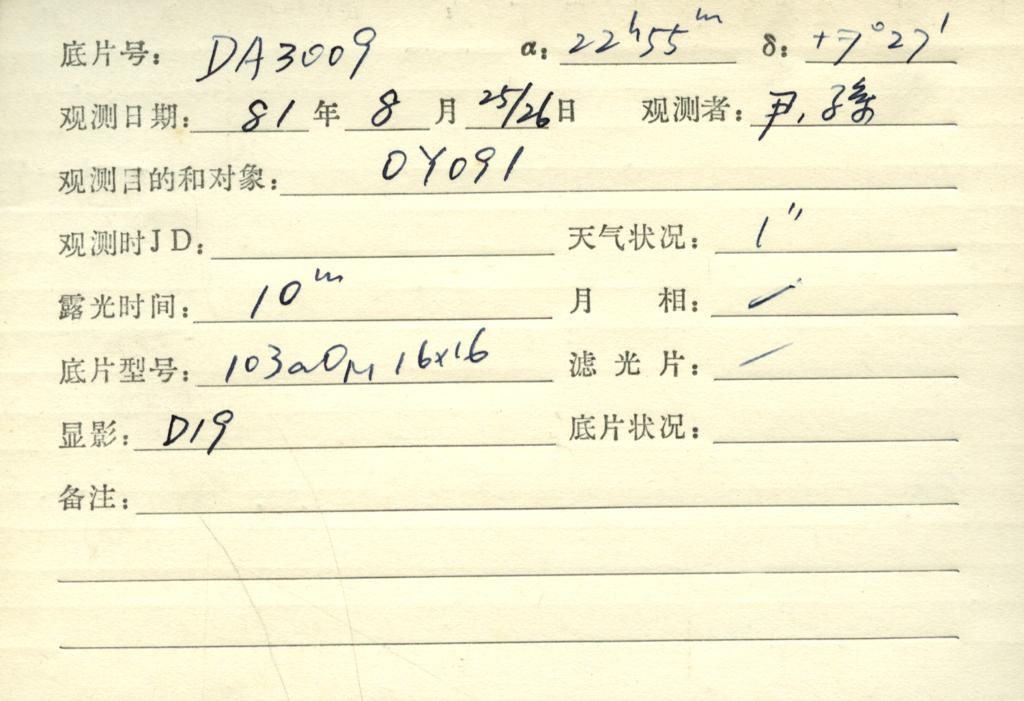 底片号: DA3009 α: 22ʰ55ᵐ δ: +7°27′
观测日期: 81 年 8 月 25/26 日 观测者: 尹, 孙
观测目的和对象: OY091
观测时JD: 天气状况: 1″
露光时间: 10ᵐ 月 相: /
底片型号: 103aO 16x16 滤 光 片: /
显影: D19 底片状况:
备注: